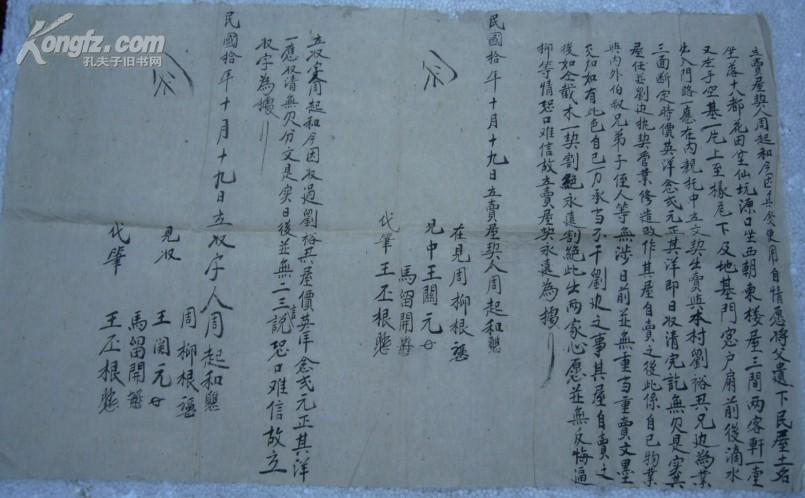 立賣屋契人周起和今因具食使用自情愿将父遺下民屋土名
坐落十八都花田空仙坑源口坐西朝東楼屋三間两客軒一堂
又左手空基一片上至椽尾下及地基門窓户扇前後滴水
出入門路一應在內親托中立文契出賣與本村劉裕丑兄邊為業
三面断定時價英洋念弍元正其洋即日收清完訖無欠是實其
屋任並劉边執契管業修造改作其屋自賣之後此係自己物業
與內外伯叔兄弟子侄人等無涉日前並無重当重賣文墨
交加如有此色自己力承当不干劉边之事其屋自賣之
後如仝截木一契割絕永遠割絕此出两家心愿並無反悔逼
抑等情恐口难信故立賣屋契永遠為據
民國拾年十月十九日立賣屋契人周起和
在見周柳根
見中王関元
馬留開
代筆王丕根
立收字周起和今因收過劉裕丑屋價英洋念弍元正其洋
一應收清無欠分文是实日後並無二三説恐口难信故立
收字為據
民國拾年十月十九日立收字人周起和
見收
周柳根
王関元
馬留開
代肇
王丕根
Kongfz.com
孔夫子旧书网